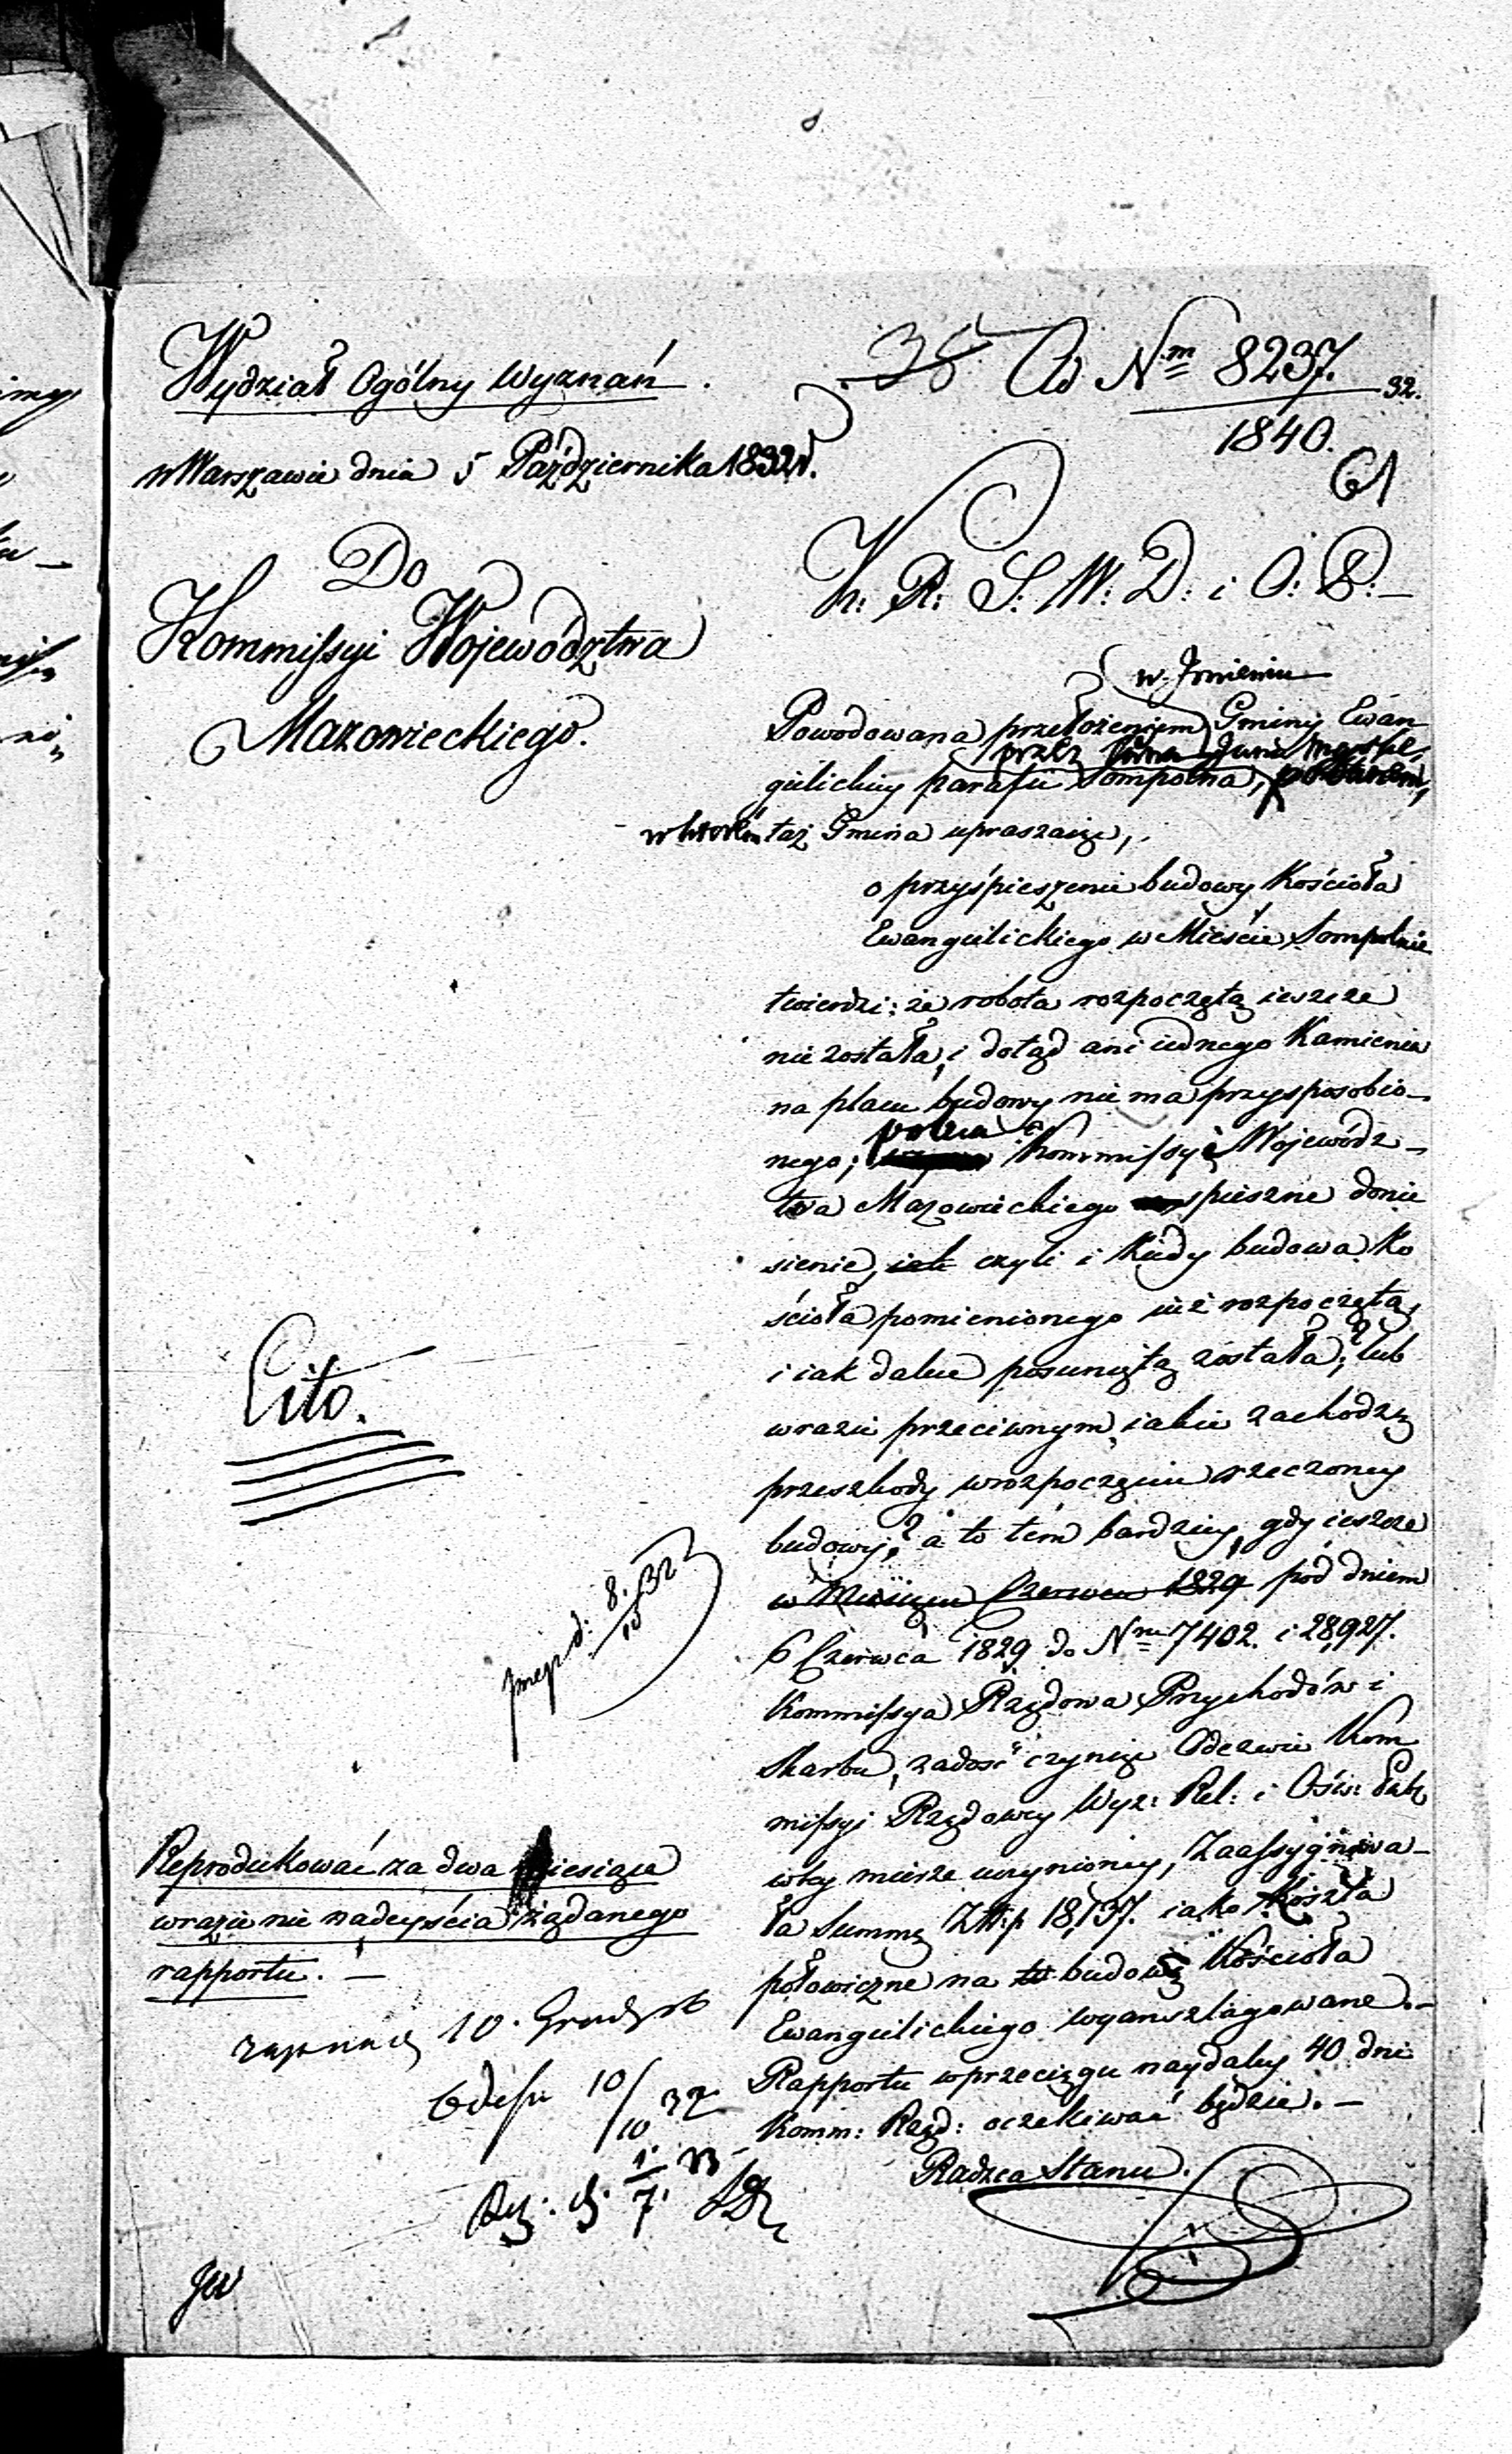 Wydział Ogólny Wyznań.
w Warszawie dnia 5 Października 1832 r.
Do
Kommissyi Województwa
Mazowieckiego.
38 Ad Nm 8237. 32.
1840.
61
K: R: S: W: D: i O: P:
w Imieniu
Powodowana przełożeniem Gminy Ewan
przez
gielickiey parafii Sompolna,
w którém taż Gmina upraszaiąc,
o przyśpieszenie budowy Kościoła
Ewangielickiego w Mieście Sompolnie
twierdzi: że robota rozpoczętą ieszcze
nie została, i dotąd ani iednego Kamienia
na placu budowy nie ma przysposobio-
nego; poleca Kommissyi Wojewódz-
twa Mazowieckiego spieszne donie
sienie, iak czyli i kiedy budowa Ko
ścioła pomienionego iuż rozpoczętą,
i iak dalece posuniętą została? lub
w razie przeciwnym, iakie zachodzą
przeszkody w rozpoczęciu rzeczoney
budowy? a to tém bardziey, gdy ieszcze
w Miesiącu Czerwcu 1829 pod dniem
6 Czerwca 1829 do Nru 7402. i 28,927.
Kommissya Rządowa Przychodów i
Skarbu, zadość czyniąc Odezwie Kom
missyi Rządowey Wyz: Rel: i Ośw: Pub:
w tey mierze uczynioney, Zaassygnowa-
ła Summę Złt:p 18,137. iako Koszta
połowiczne na budowę Kościoła
Ewangielickiego wyanszlagowane.-
Rapportu w przeciągu naydaley 40 dni
Komm: Rząd: oczekiwać będzie. -
Radzca Stanu.
Cito.
d: 8/10 32
Reprodukować za dwa Miesiące
w razie nie nadeyścia żądanego
rapportu. -
10. Grudz
10/10 32